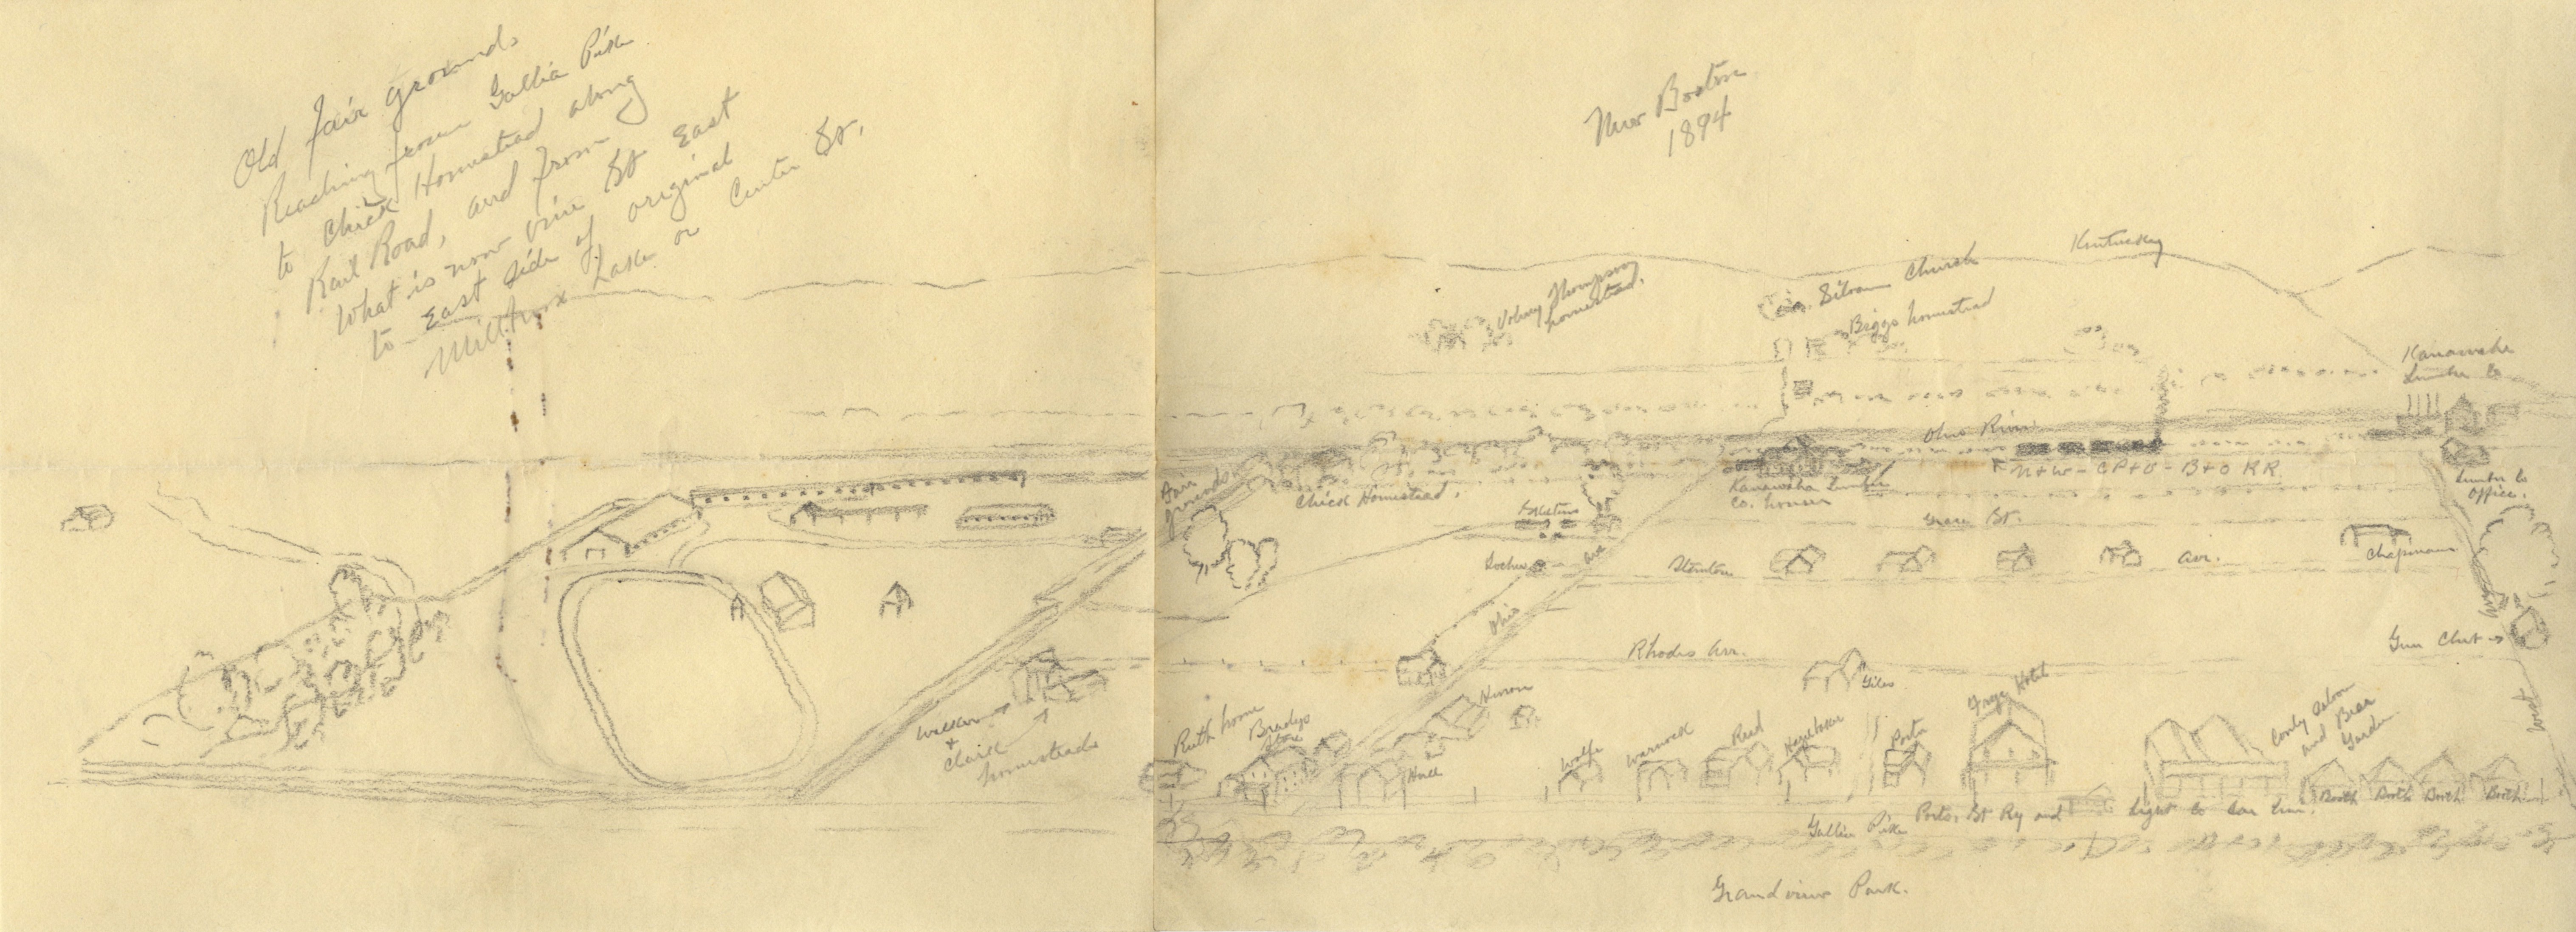 Old fair grounds
Reaching from Gallia Pike
to Chick Homestead along
Rail Road, and from
what is now vine St East
to East side of original
Millbrook Lake or Center St.
New Boston
1894
Kentucky
Siloam Church
Thompson
homestead.
Briggs homestead
Kanawha
Lumber Co
Ohio River
N+W - CP+V - B+O RR
Fair
grounds
Chick Homestead.
Kanawha Lumber
Co. houses
Lumber Co
Office.
Grace St.
Stanton
Ave.
Chapman
Ohio
Ave
Gun Club
Rhodes Ave.
Giles
Walker
+
Clark
homesteads
Ruth home
Bradys
Store
Hall
Wolfe
Warnock
Reed
Hazelbaker
Ports
Hotel
Saloon
and Beer
Garden
Booth Booth Booth Booth
West
Gallia Pike Ports. St Ry and Light Co Car Line.
Grandview Park.